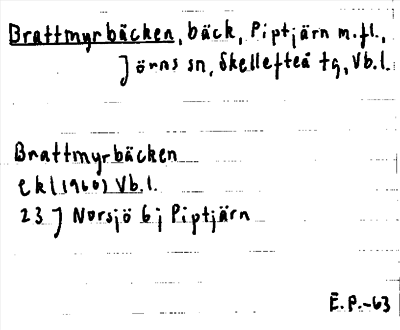 Brattmyrbäcken, bäck, Piptjärn m.fl.,
Jörns sn, Skellefteå tg, Vb.l.
Brattmyrbäcken
ekl (1960) Vb.l.
23 J Norsjö 6j Piptjärn
E.P.-63